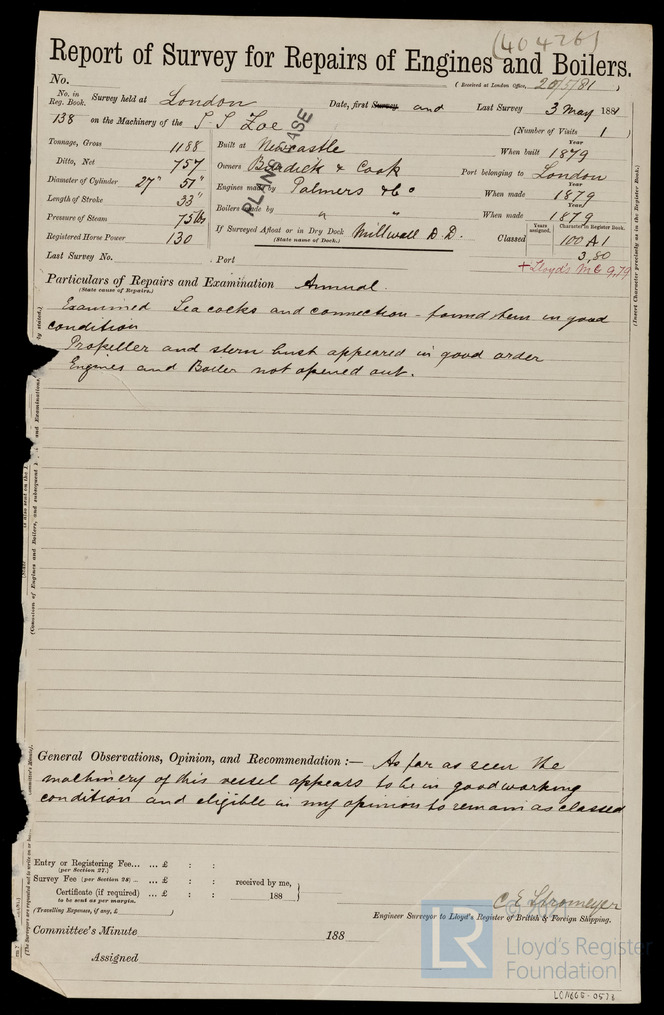 (40426)
Report of Survey for Repairs of Engines and Boilers.
No. (Received at London Office, 20/5/81)
No. in Reg. Book. Survey held at London Date, first Survey and Last Survey 3 May 1881
138 on the Machinery of the S S Zoe (Number of Visits 1)
PLANS CASE
Tonnage, Gross 1188 Built at Newcastle When built Year 1879
Ditto, Net 757 Owners & Cook Port belonging to London
Diameter of Cylinder 27" 51" Engines made by Palmers & Co When made Year 1879
Length of Stroke 33" Boilers made by " " When made Year 1879
Pressure of Steam 75 lbs
Registered Horse Power 130 If Surveyed Afloat or in Dry Dock Millwall D.D. Classed Years assigned. Character in Register Book. 100 A 1
(State name of Dock.) 3,80
Last Survey No. Port + Lloyd's M C 9,79
Particulars of Repairs and Examination Annual.
(State cause of Repairs.)
Examined Sea cocks and connection - found them in good
condition
Propeller and stern bush appeared in good order
Engines and Boiler not opened out.
(Insert Character precisely as in the Register Book.)
General Observations, Opinion, and Recommendation :— As far as seen the
machinery of this vessel appears to be in good working
condition and eligible in my opinion to remain as classed
Entry or Registering Fee... ... £ : :
(per Section 27.)
Survey Fee (per Section 28) ... ... £ : : received by me,
Certificate (if required) ... £ : : 188
to be sent as per margin.
(Travelling Expenses, if any, £ )
C E Stromeyer
Engineer Surveyor to Lloyd's Register of British & Foreign Shipping.
Committee's Minute 188
Assigned
LR
Lloyd's Register
Foundation
LCN665-0533